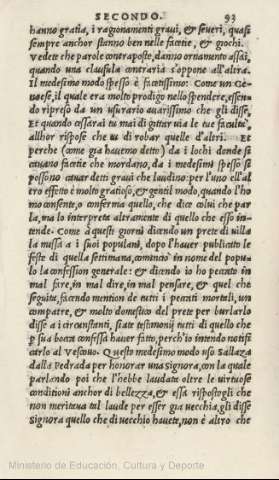 SECONDO. 93
hanno gratia, i ragionamenti graui, & seueri, quasi
sempre anchor stanno ben nelle facetie, & giochi.
Vedete che parole contraposte, danno ornamento assai,
quando una clausula contraria s'oppone all'altra.
Il medesimo modo spesso è facetissimo: Come un Ge
nouese, il quale era molto prodigo nello spendere, essen-
do ripreso da un usurario auarissimo, che gli disse,
Et quando cessarai tu mai di gittar uia le tue facultà,
allhor rispose che tu di robar quelle d'altri. Et
perche (come gia hauemo detto) da i lochi donde si
cauano facetie che mordano, da i medesimi spesso si
possono cauar detti graui che laudino: per l'uno e l'al
ero effetto è molto gratioso, & gentil modo, quando l'ho
mo consente, o conferma quello, che dice colui che par
la, ma lo interpreta altramente di quello che esso in-
tende. Come a questi giorni dicendo un prete di uilla
la missa a i suoi populani, dopo l'hauer publicato le
feste di quella settimana, cominciò in nome del popu-
lo la confession generale: & dicendo io ho peccato in
mal fare, in mal dire, in mal pensare, & quel che
seguita, facendo mention de tutti i peccati mortali, un
compatre, & molto domestico del prete per burlarlo
disse a i circunstanti, siate testimonij tutti di quello che
p sua bocca confessa hauer fatto, perch'io intendo notifi
carlo al Vescouo. Questo medesimo modo uso Sallaza
dalla Pedrada per honorar una signora, con la quale
parlando poi che l'hebbe laudata oltre le uirtuose
conditioni anchor di bellezza, & essa rispostogli che
non meritaua tal laude per esser gia uecchia, gli disse
Signora quello che di uecchio hauete, non è altro che
Ministerio de Educación, Cultura y Deporte